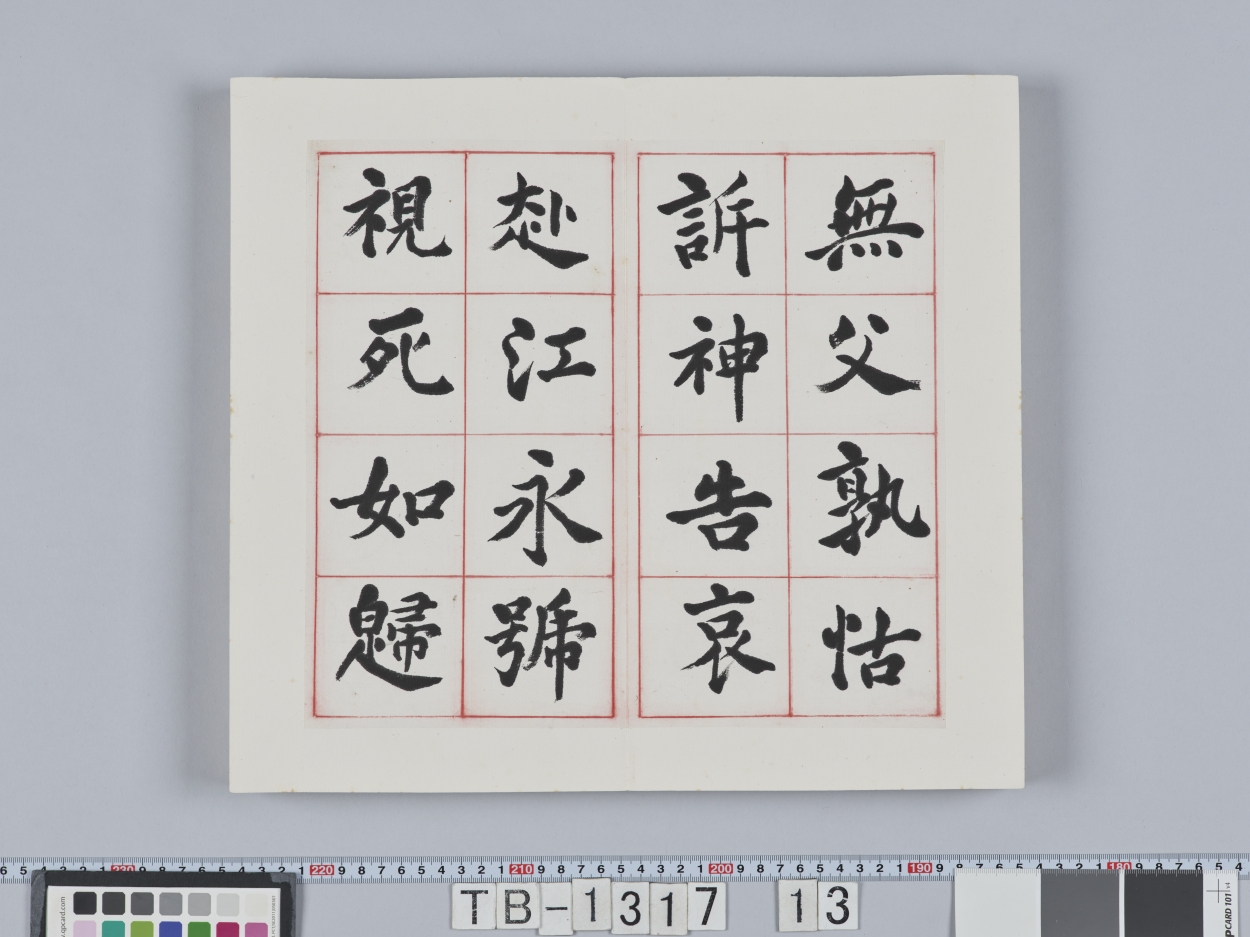 無父孰怙
訴神告哀
赴江永號
視死如歸
6 5 4 3 2 1 220 9 8 7 6 5 4 3 2 1 220 9 8 7 6 5 4 3 2 1 210 9 8 7 6 5 4 3 2 1 200 9 8 7 6 5 4 3 2 1 190 9 8 7 6 5 4 3 2 1 180 9 8 7 6 5 4
TB-1317 13
qpcard.com
CARD 101 v4